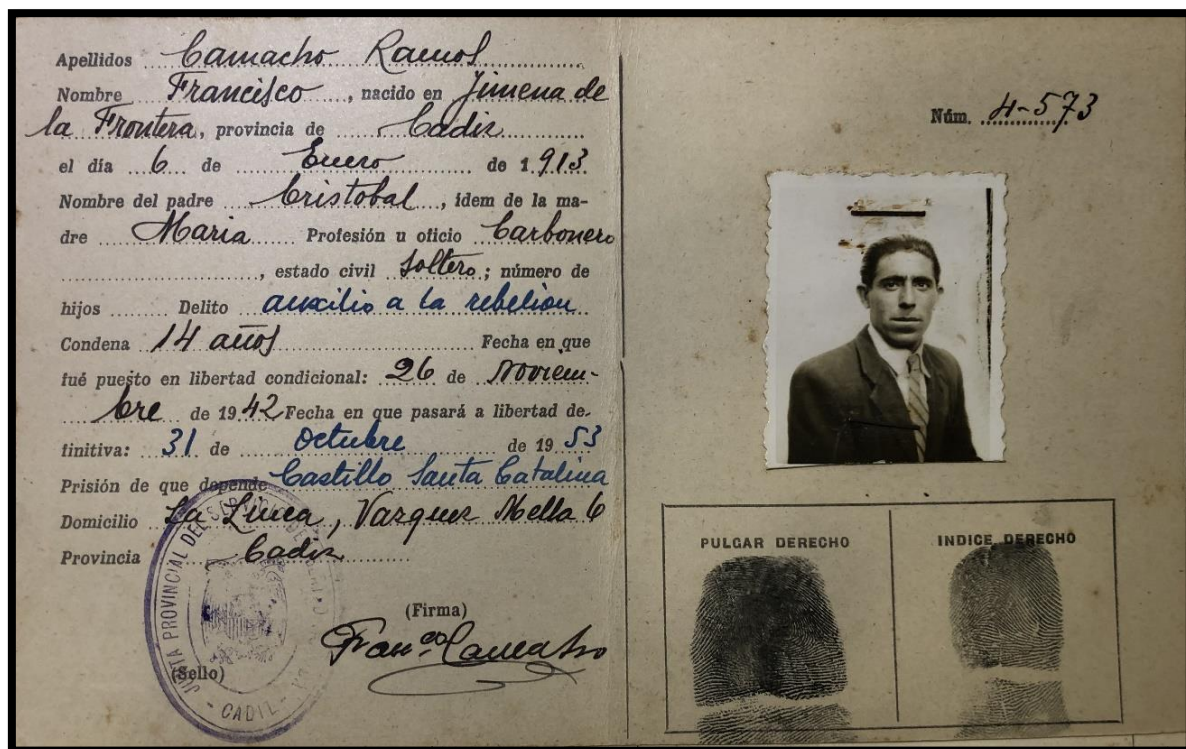 Apellidos Camacho Ramos
Nombre Francisco, nacido en Jimena de
la Frontera, provincia de Cadiz
el día 6 de Enero de 1.913
Nombre del padre Cristobal, ídem de la ma-
dre Maria Profesión u oficio Carbonero
, estado civil soltero; número de
hijos Delito auxilio a la rebelion
Condena 14 años Fecha en que
fué puesto en libertad condicional: 26 de Noviem-
bre de 1942 Fecha en que pasará a libertad de-
finitiva: 31 de Octubre de 1953
Prisión de que depende Castillo Santa Catalina
Domicilio La Linea, Vazquez Mella 6
Provincia Cadiz
(Firma)
Fran.co Camacho
(Sello)
JUNTA PROVINCIAL DEL
CADIZ
Núm. 4-573
PULGAR DERECHO
INDICE DERECHO